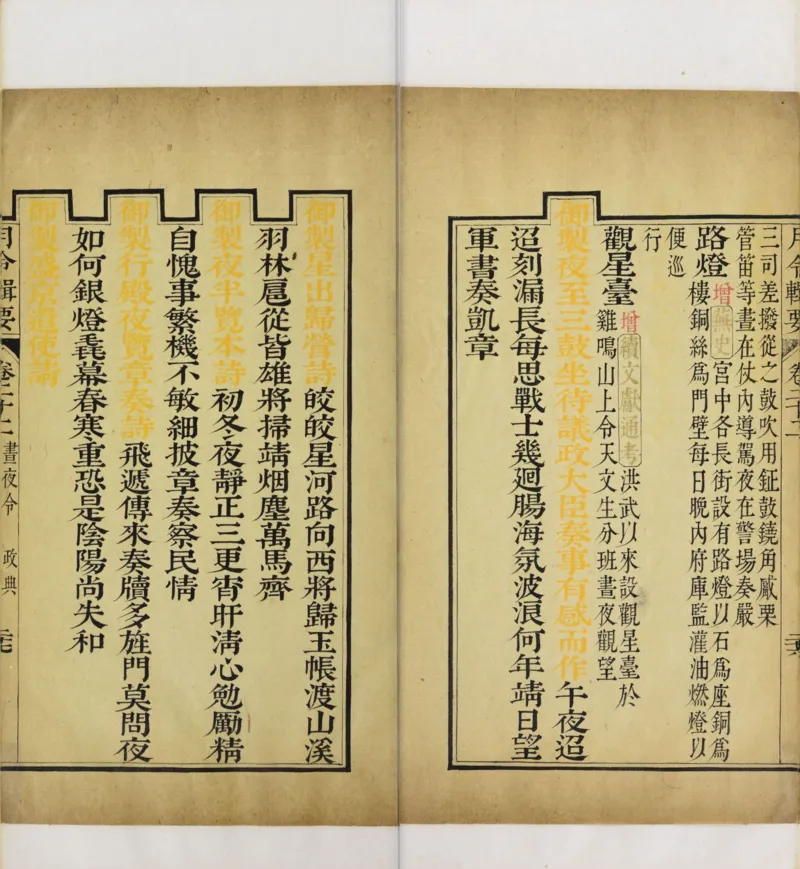 月令輯要 卷二十二 二六
三司差撥從之鼓吹用鉦鼓鐃角嚴栗
管笛等晝在仗內導駕夜在警場奏嚴
路燈增蕪史宮中各長街設有路燈以石爲座銅爲
樓銅絲爲門壁每日晚內府庫監灌油燃燈以
便巡
行
觀星臺增續文獻通考洪武以來設觀星臺於
雞鳴山上令天文生分班晝夜觀望
御製夜至三鼓坐待議政大臣奏事有感而作午夜迢
迢刻漏長每思戰士幾廻腸海氛波浪何年靖日望
軍書奏凱章
御製星出歸營詩皎皎星河路向西將歸玉帳渡山溪
羽林扈從皆雄將掃靖烟塵萬馬齊
御製夜半覽本詩初冬夜靜正三更宵旰清心勉勵精
自愧事繁機不敏細披章奏察民情
御製行殿夜覽章奏詩飛遞傳來奏牘多旌門莫問夜
如何銀燈毳幕春寒重恐是陰陽尚失和
御製盛京遣使請
月令輯要 卷二十二 晝夜令 政典 二七